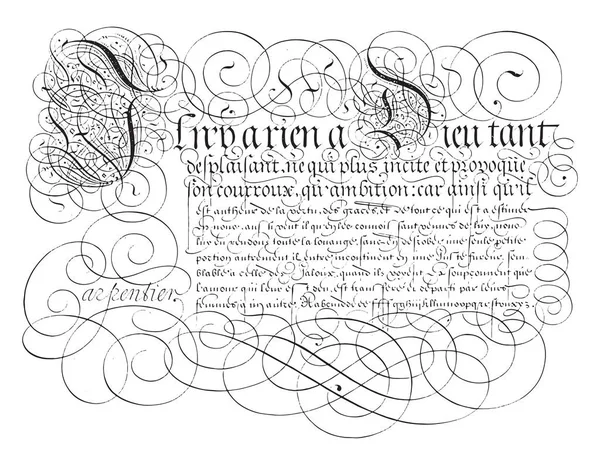 Il n'y a rien a Dieu tant
desplaisant, ne qui plus incite et provoque
son courroux, qu'ambition: car ainsi qu'il
est autheur de la vertu, des graces, et de tout ce qui est a estimer
en nous, aussi veut il qu'en les connoissant venues de luy, nous
luy en rendons toute la louange, sans en desrober une seule petite
portion autrement il entre incontinent en une juste fureur, sem-
blable a celle des Jaloux, quand ils voyent et soupconnent que
l'amour qui leur est deu, est transferé et departi par leurs
femmes a un autre. Aabcmddeeefffsgghijkllmnoopqrsstouxyz.
Carpentier.